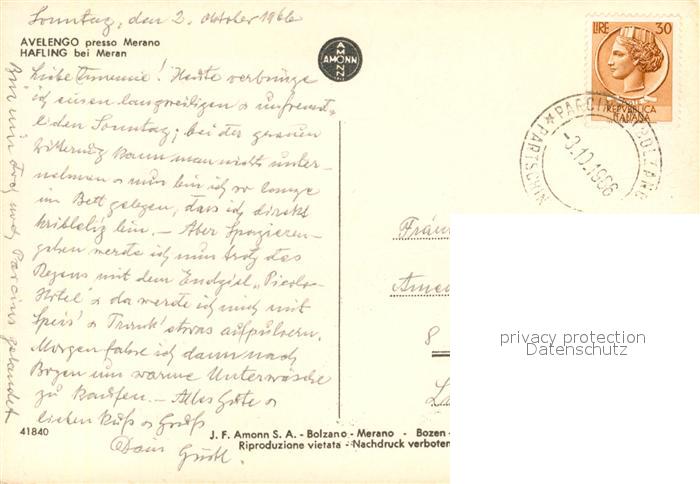 Sonntag, den 2. Oktober 1966
AVELENGO presso Merano
HAFLING bei Meran
AMONN
AMONN
LIRE 30
REPVBBLICA
ITALIANA
* PARCINES (BOLZANO) * PARTSCHINS
-3.10.1966
Liebe! Heute verbringe
ich einen langweiligen u unfreund-
lichen Sonntag; bei der grauen
Witterung kann man nichts unter-
nehmen u nun bin ich so lange
im Bett gelegen, dass ich direkt
kribbelig bin. — Aber Spazieren-
gehen werde ich nun trotz des
Regens mit dem Endziel „Piccolo-
Hotel" u da werde ich mich mit
Speis' u Trank' etwas aufpulvern.
Morgen fahre ich dann nach
Bozen um warme Unterwäsche
zu kaufen. — Alles Gute u
lieben Kuß u Gruß
Bin nun doch noch Parcins gelandet
Fräu
Amer
8
privacy protection
Datenschutz
41840
J. F. Amonn S. A. - Bolzano - Merano - Bozen -
Riproduzione vietata - Nachdruck verboten